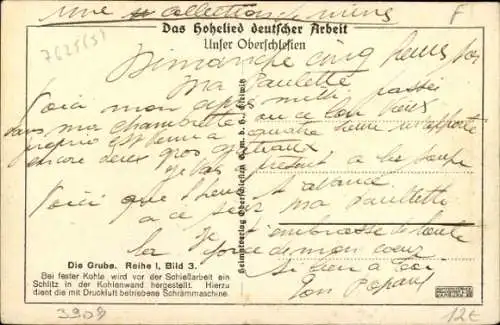 une collection de mine
F
7625(5)
Das Hohelied deutscher Arbeit
Unser Oberschlesien
Dimanche cinq heures
Ma Paulette
Voici mon après midi passé
dans ma chambrette où ce bon
est venu a quatre heure
encore deux gros gateaux
Je vais a présent a la soupe
Voici que l'heure s'avance
a ce soir ma Paulette
Je t'embrasse de toute
la force de mon coeur
bien a toi
Ton
Heimatverlag Oberschlesien G. m. b. H. Gleiwitz
Die Grube. Reihe I, Bild 3.
Bei fester Kohle wird vor der Schießarbeit ein
Schlitz in der Kohlenwand hergestellt. Hierzu
dient die mit Druckluft betriebene Schrämmaschine.
3908
12€